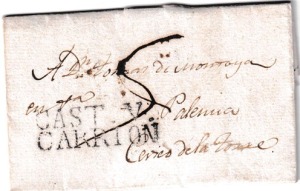 A Dn Tomas de Montoya
en
Palencia
CAST. V.
CARRION
Cevico de la Torre
5